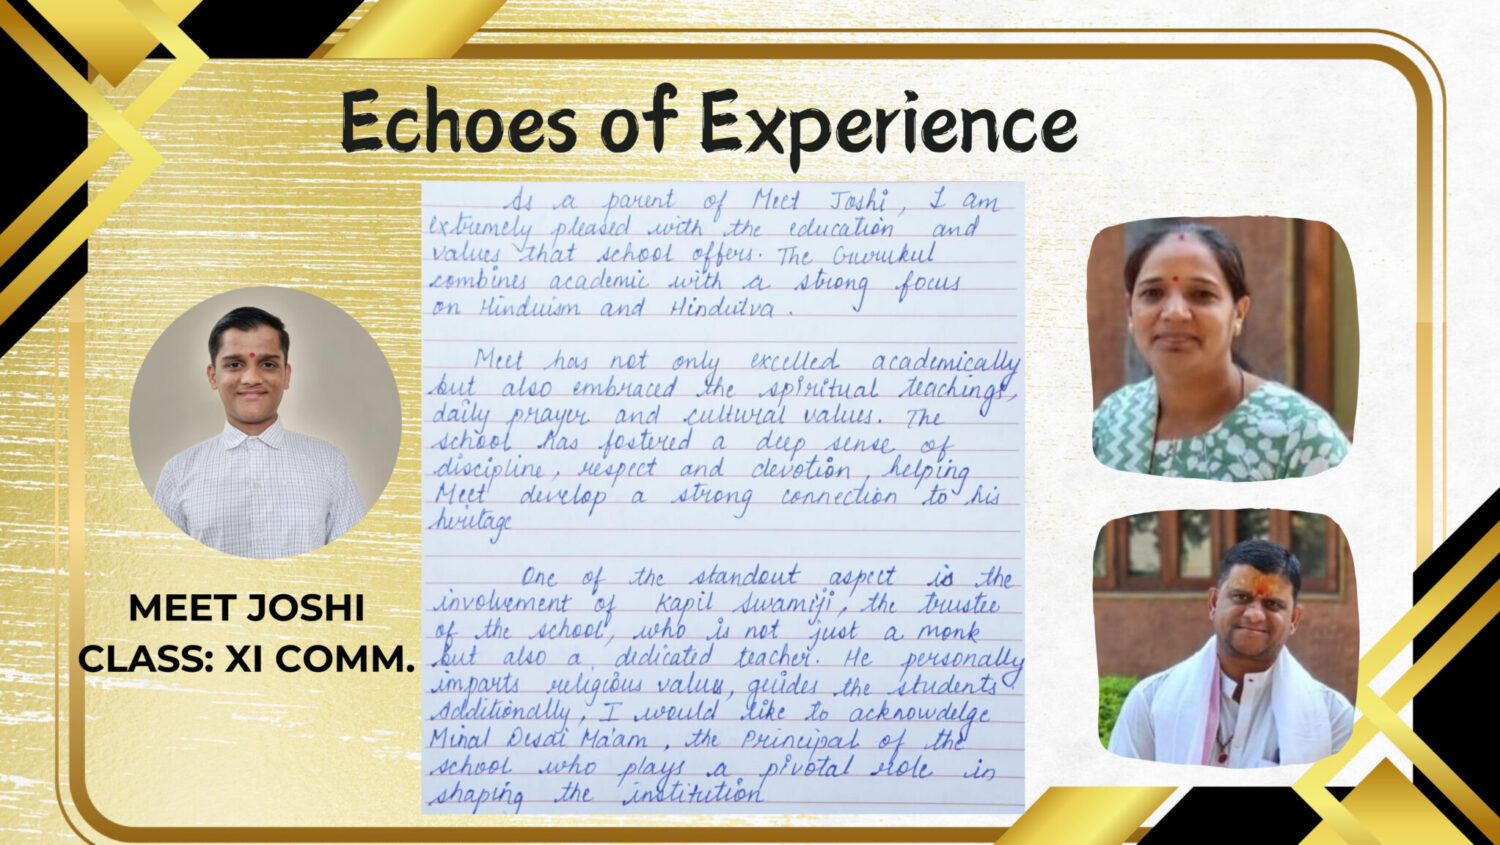 Echoes of Experience
As a parent of Meet Joshi, I am
extremely pleased with the education and
values that school offers. The Gurukul
combines academic with a strong focus
on Hinduism and Hindutva.
Meet has not only excelled academically
but also embraced the spiritual teachings,
daily prayer and cultural values. The
school has fostered a deep sense of
discipline, respect and devotion, helping
Meet develop a strong connection to his
heritage
One of the standout aspect is the
involvement of Kapil Swamiji, the trustee
of the school, who is not just a monk
but also a dedicated teacher. He personally
imparts religious values, guides the students.
Additionally, I would like to acknowdelge
Minal Desai Ma'am, the Principal of the
school who plays a pivotal role in
shaping the institution
MEET JOSHI
CLASS: XI COMM.